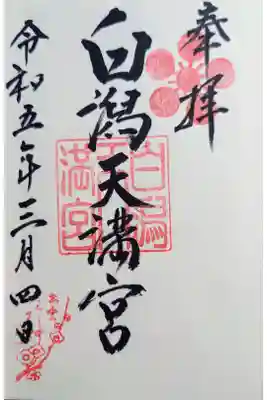 奉拝
白潟天満宮
白潟天満宮
令和五年三月四日